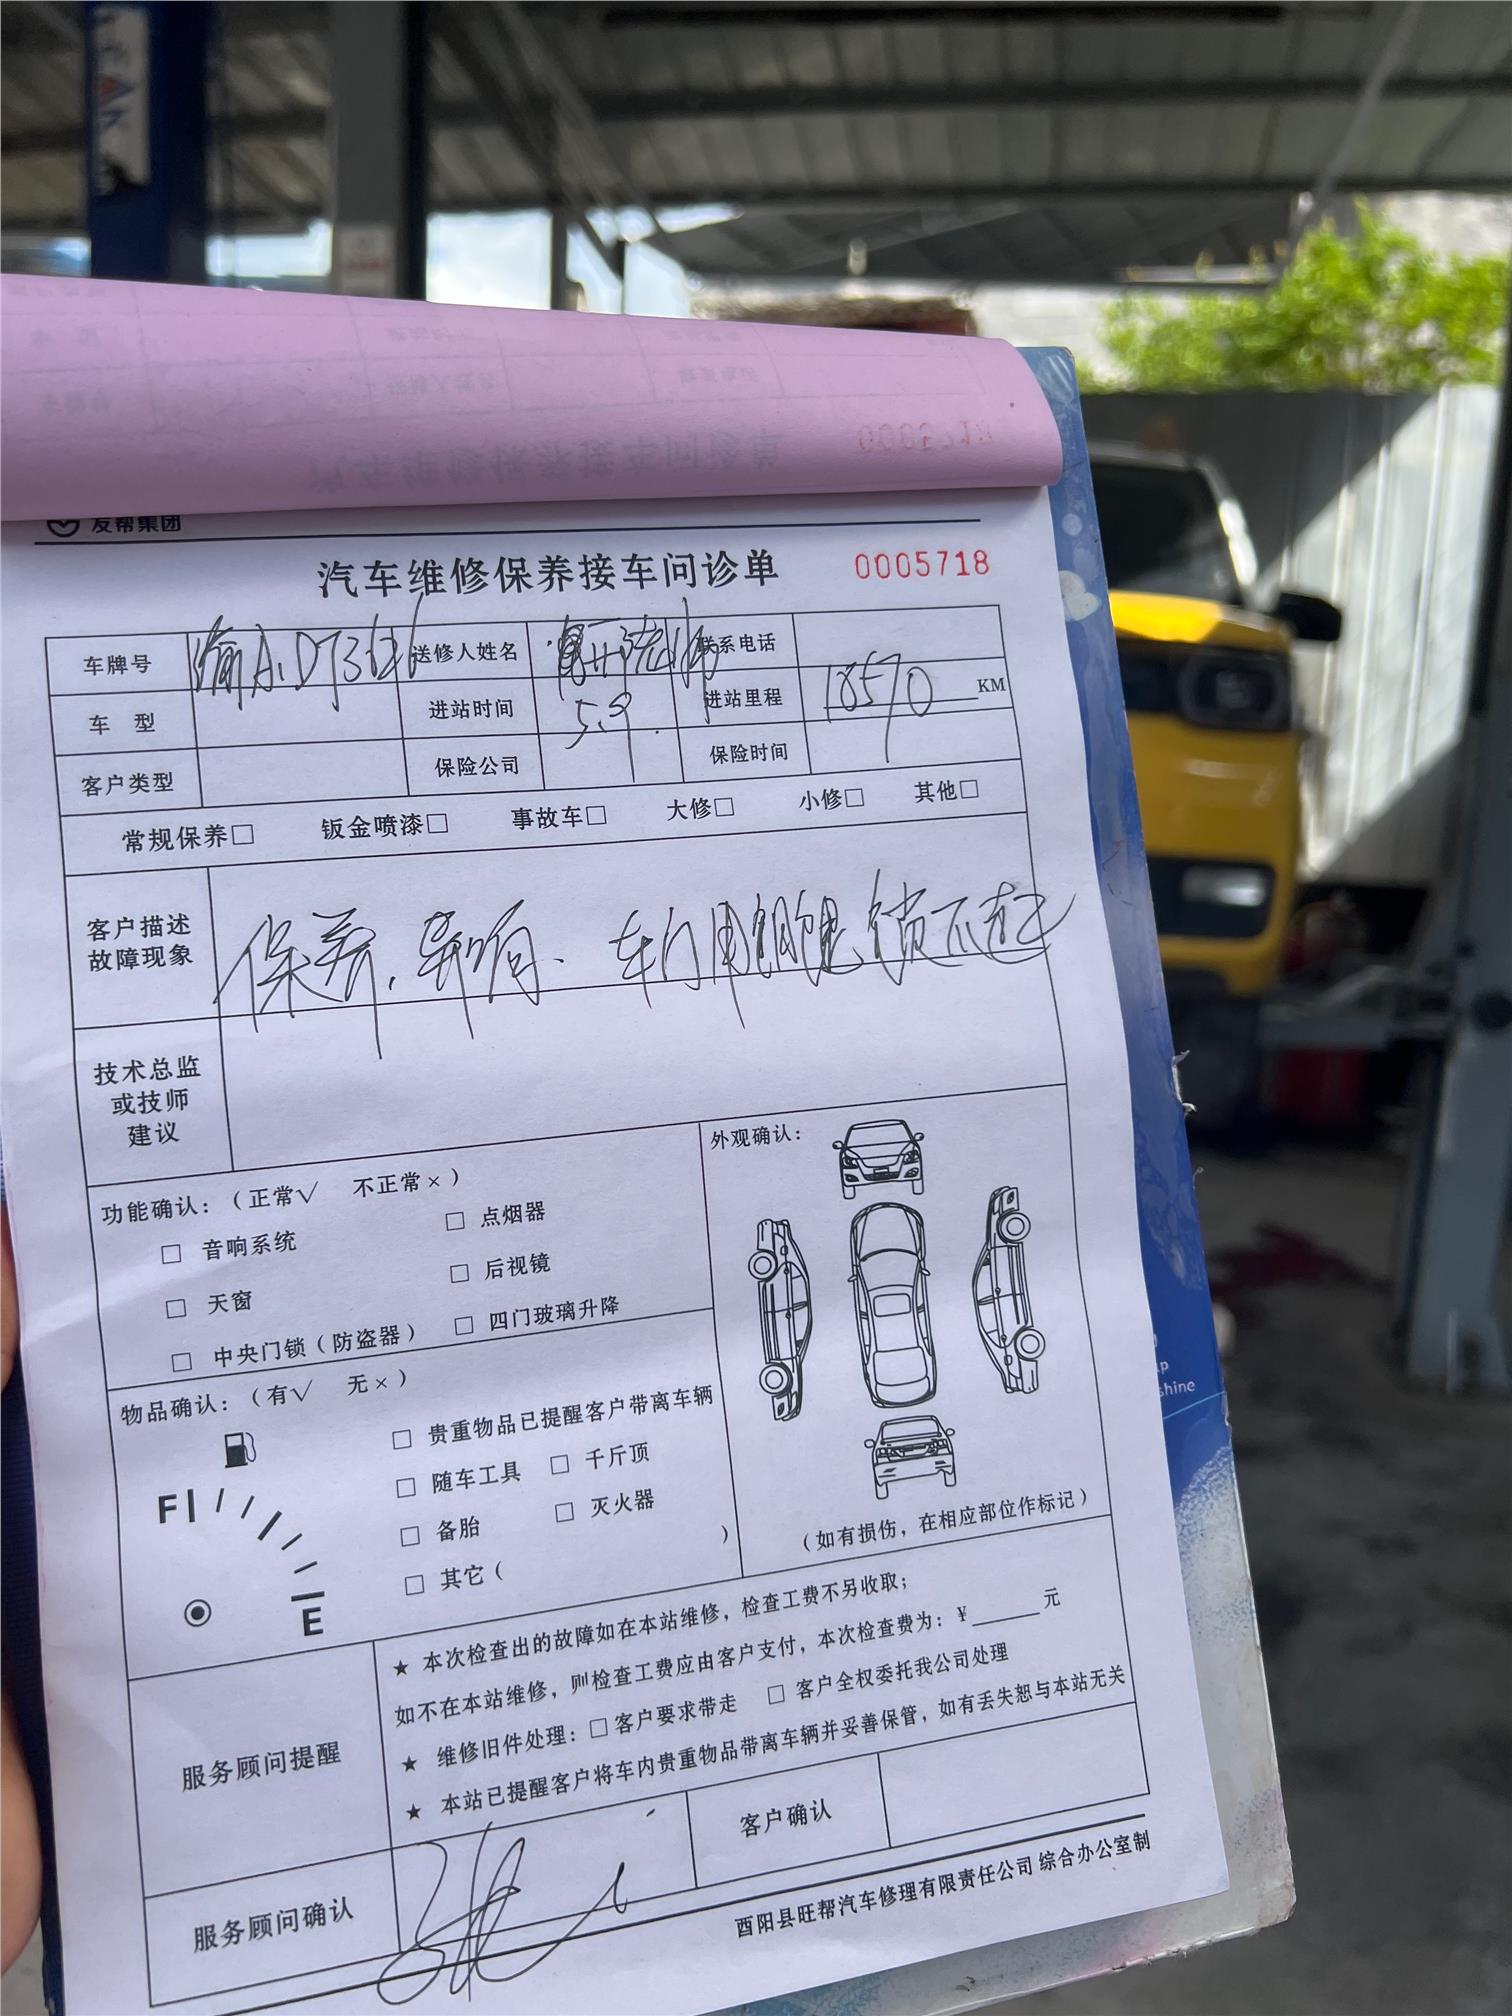 友帮集团
汽车维修保养接车问诊单 0005718
车牌号 送修人姓名 联系电话
车 型 进站时间 5.9. 进站里程 18570 KM
客户类型 保险公司 保险时间
常规保养□ 钣金喷漆□ 事故车□ 大修□ 小修□ 其他□
客户描述
故障现象
保养. 异响. 车门用钥匙锁不起
技术总监
或技师
建议
功能确认：（正常√ 不正常×）
□ 音响系统 □ 点烟器
□ 天窗 □ 后视镜
□ 中央门锁（防盗器） □ 四门玻璃升降
外观确认：
（如有损伤，在相应部位作标记）
物品确认：（有√ 无×）
□ 贵重物品已提醒客户带离车辆
□ 随车工具 □ 千斤顶
□ 备胎 □ 灭火器
□ 其它（ ）
F
E
服务顾问提醒
★ 本次检查出的故障如在本站维修，检查工费不另收取；
如不在本站维修，则检查工费应由客户支付，本次检查费为：¥______元
★ 维修旧件处理：□客户要求带走 □ 客户全权委托我公司处理
★ 本站已提醒客户将车内贵重物品带离车辆并妥善保管，如有丢失恕与本站无关
服务顾问确认 客户确认
酉阳县旺帮汽车修理有限责任公司 综合办公室制
shine